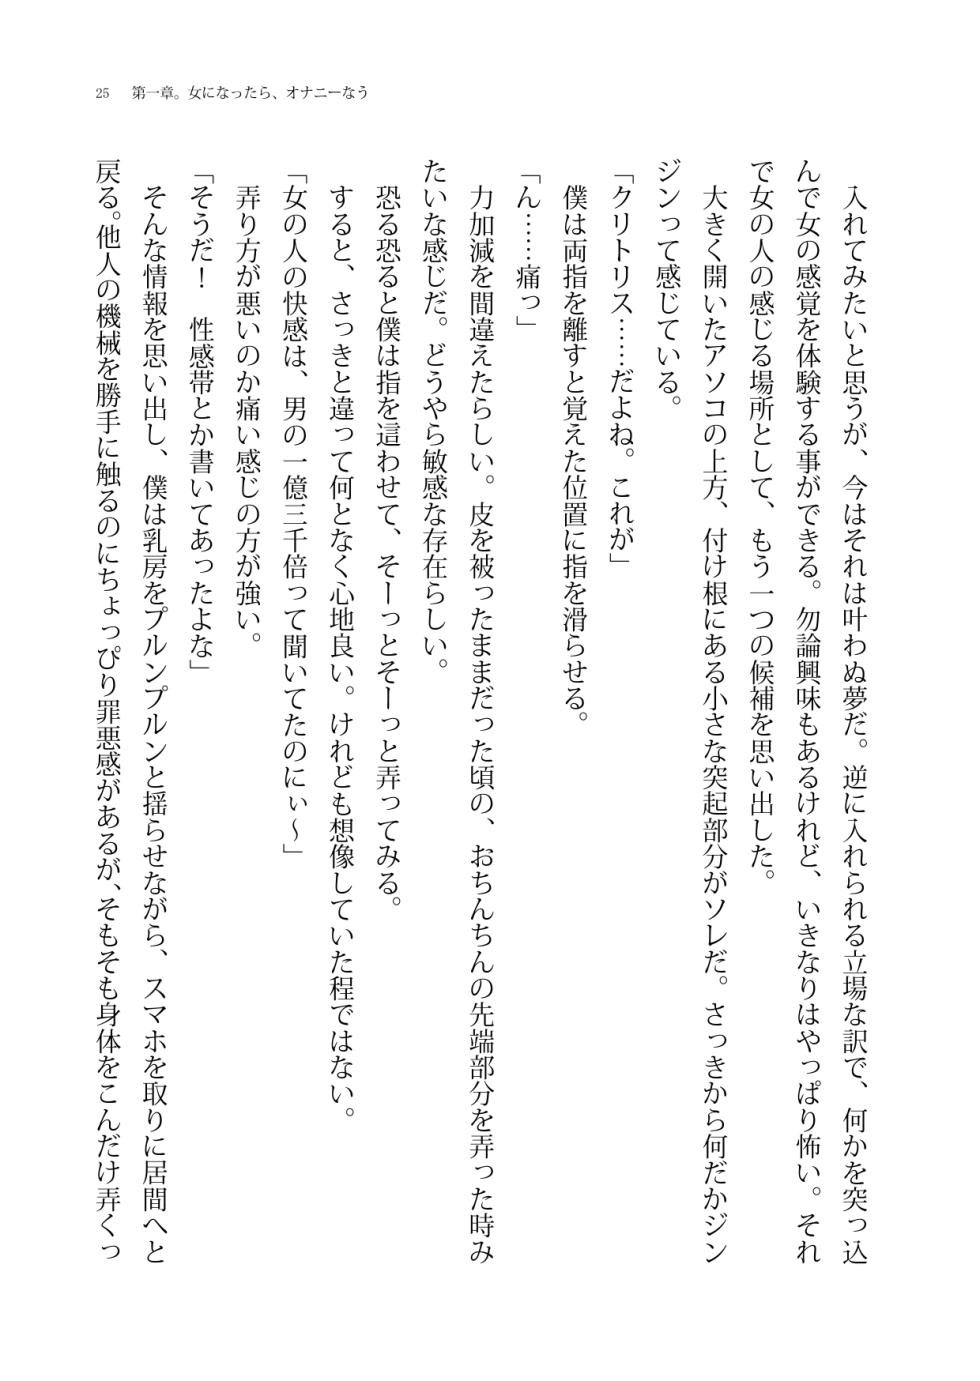 25　第一章。女になったら、オナニーなう
　入れてみたいと思うが、今はそれは叶わぬ夢だ。逆に入れられる立場な訳で、何かを突っ込
んで女の感覚を体験する事ができる。勿論興味もあるけれど、いきなりはやっぱり怖い。それ
で女の人の感じる場所として、もう一つの候補を思い出した。
　大きく開いたアソコの上方、付け根にある小さな突起部分がソレだ。さっきから何だかジン
ジンって感じている。
「クリトリス……だよね。これが」
　僕は両指を離すと覚えた位置に指を滑らせる。
「ん……痛っ」
　力加減を間違えたらしい。皮を被ったままだった頃の、おちんちんの先端部分を弄った時み
たいな感じだ。どうやら敏感な存在らしい。
　恐る恐ると僕は指を這わせて、そーっとそーっと弄ってみる。
　すると、さっきと違って何となく心地良い。けれども想像していた程ではない。
「女の人の快感は、男の一億三千倍って聞いてたのにぃ～」
　弄り方が悪いのか痛い感じの方が強い。
「そうだ！　性感帯とか書いてあったよな」
　そんな情報を思い出し、僕は乳房をプルンプルンと揺らせながら、スマホを取りに居間へと
戻る。他人の機械を勝手に触るのにちょっぴり罪悪感があるが、そもそも身体をこんだけ弄くっ